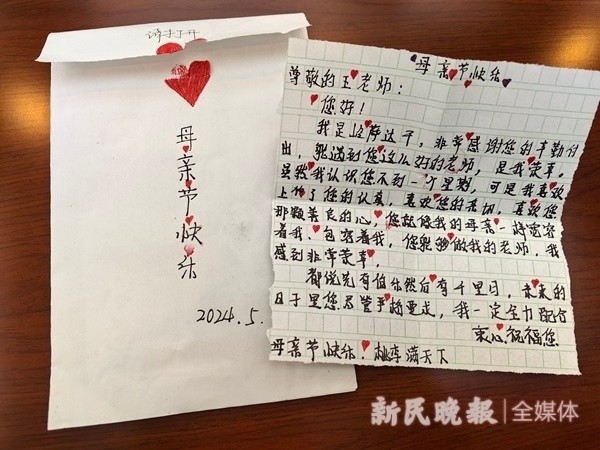 请打开
母亲节快乐
2024.5.
母亲节快乐
尊敬的王老师：
您好！
我是 达干，非常感谢您的辛勤付
出，能遇到您这么好的老师，是我荣幸。
虽然我认识您不到一个星期，可是我喜欢
上你了您的认真，喜欢您的 ，喜欢您
那颗善良的心，您就像我的母亲一样宽容
着我，包容着我，您能够做我的老师，我
感到非常荣幸。
都说先有伯乐然后有千里马，未来的
日子里您尽管严格要求，我一定全力配合
衷心祝福您
母亲节快乐！桃李满天下
新民晚报|全媒体